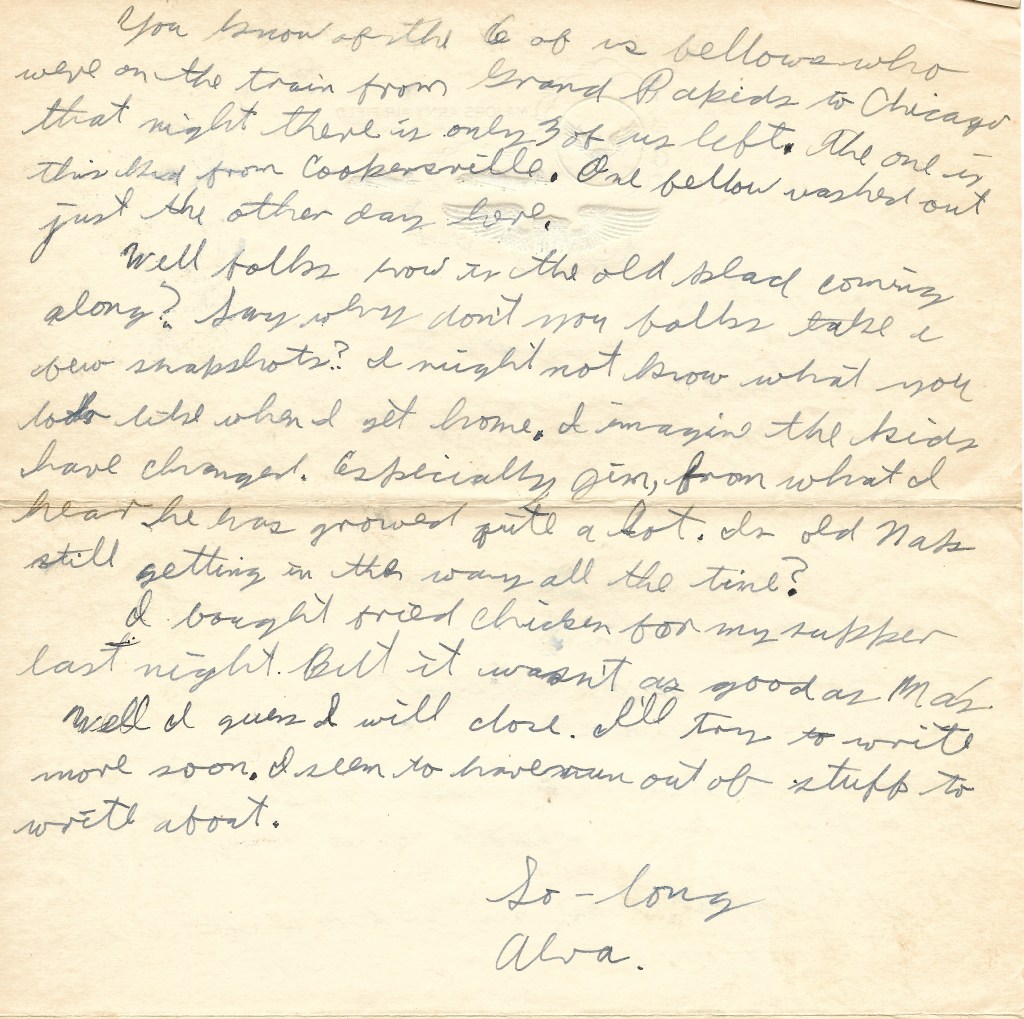 You know of the 6 of us fellows who
were on the train from Grand Rapids to Chicago
that night there is only 3 of us left. The one is
this kid from Coopersville. One fellow washed out
just the other day here.
Well folks how is the old Slad coming
along? Say why don't you folks take a
few snapshots? I might not know what you
look like when I get home. I imagine the kids
have changed. Especially Jim, from what I
hear he has growed quite a lot. Is old Nab
still getting in the way all the time?
I bought fried chicken for my supper
last night. But it wasn't as good as Ma's.
Well I guess I will close. I'll try to write
more soon. I seem to have run out of stuff to
write about.
So-long
Alva.